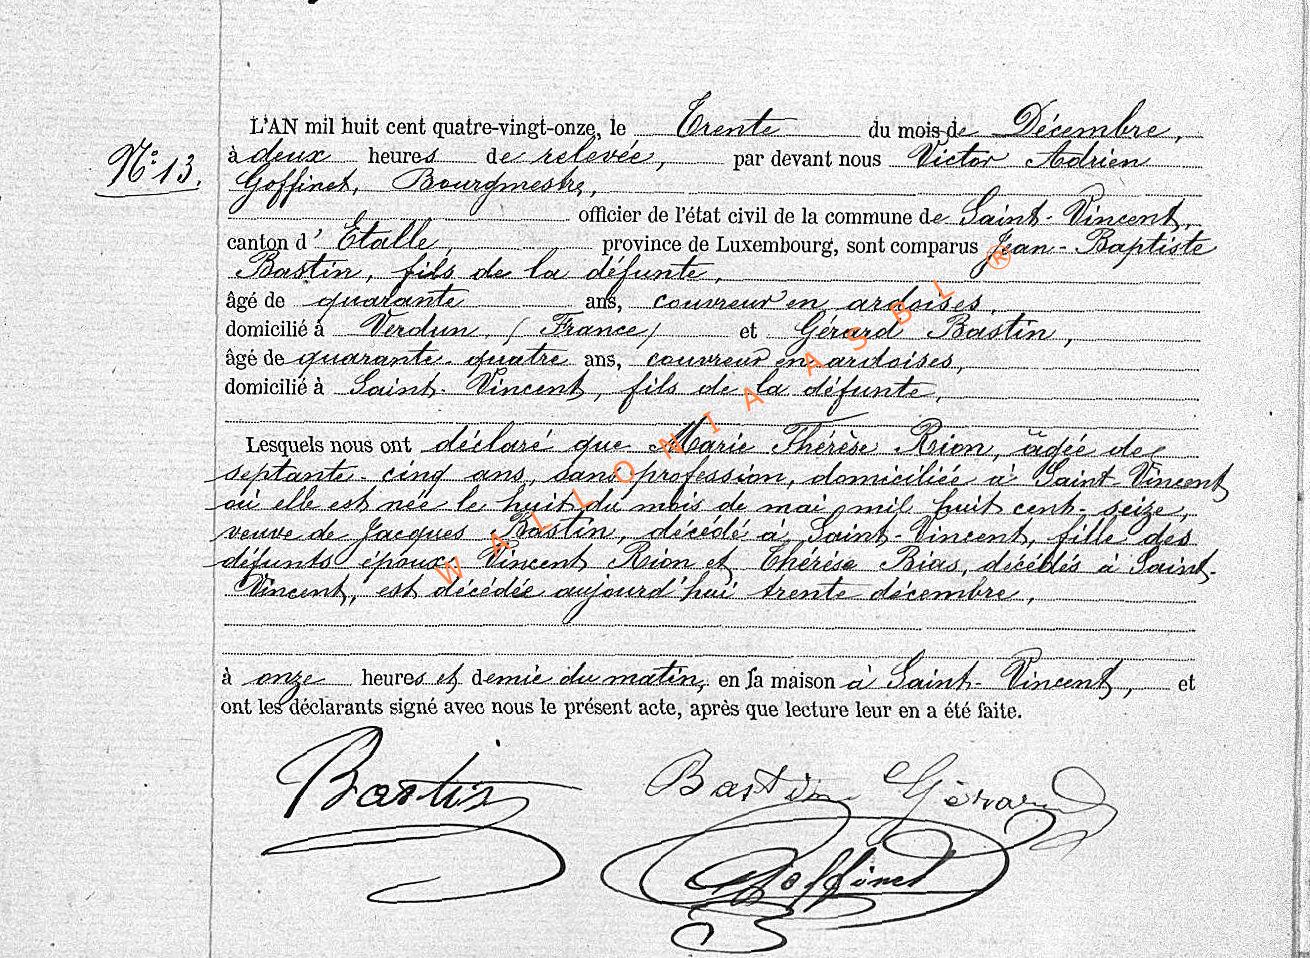 L'AN mil huit cent quatre-vingt-onze, le Trente du mois de Décembre,
N° 13.
à deux heures de relevée, par devant nous Victor Adrien
Goffinet, Bourgmestre,
officier de l'état civil de la commune de Saint-Vincent,
canton d' Etalle, province de Luxembourg, sont comparus Jean-Baptiste
Bastin, fils de la défunte,
âgé de quarante ans, couvreur en ardoises,
domicilié à Verdun, (France) et Gérard Bastin,
âgé de quarante-quatre ans, couvreur en ardoises,
domicilié à Saint-Vincent, fils de la défunte,
Lesquels nous ont déclaré que Marie Thérèse Rion, âgée de
septante-cinq ans, sans profession, domiciliée à Saint-Vincent
où elle est née le huit du mois de mai mil huit cent-seize,
veuve de Jacques Bastin, décédé à Saint-Vincent, fille des
défunts époux Vincent Rion et Thérèse Bias, décédés à Saint-
Vincent, est décédée aujourd'hui trente décembre,
à onze heures et demie du matin, en sa maison à Saint-Vincent, et
ont les déclarants signé avec nous le présent acte, après que lecture leur en a été faite.
Bastin Bastin Gérard
Goffinet
WALLONIA ASBL ®